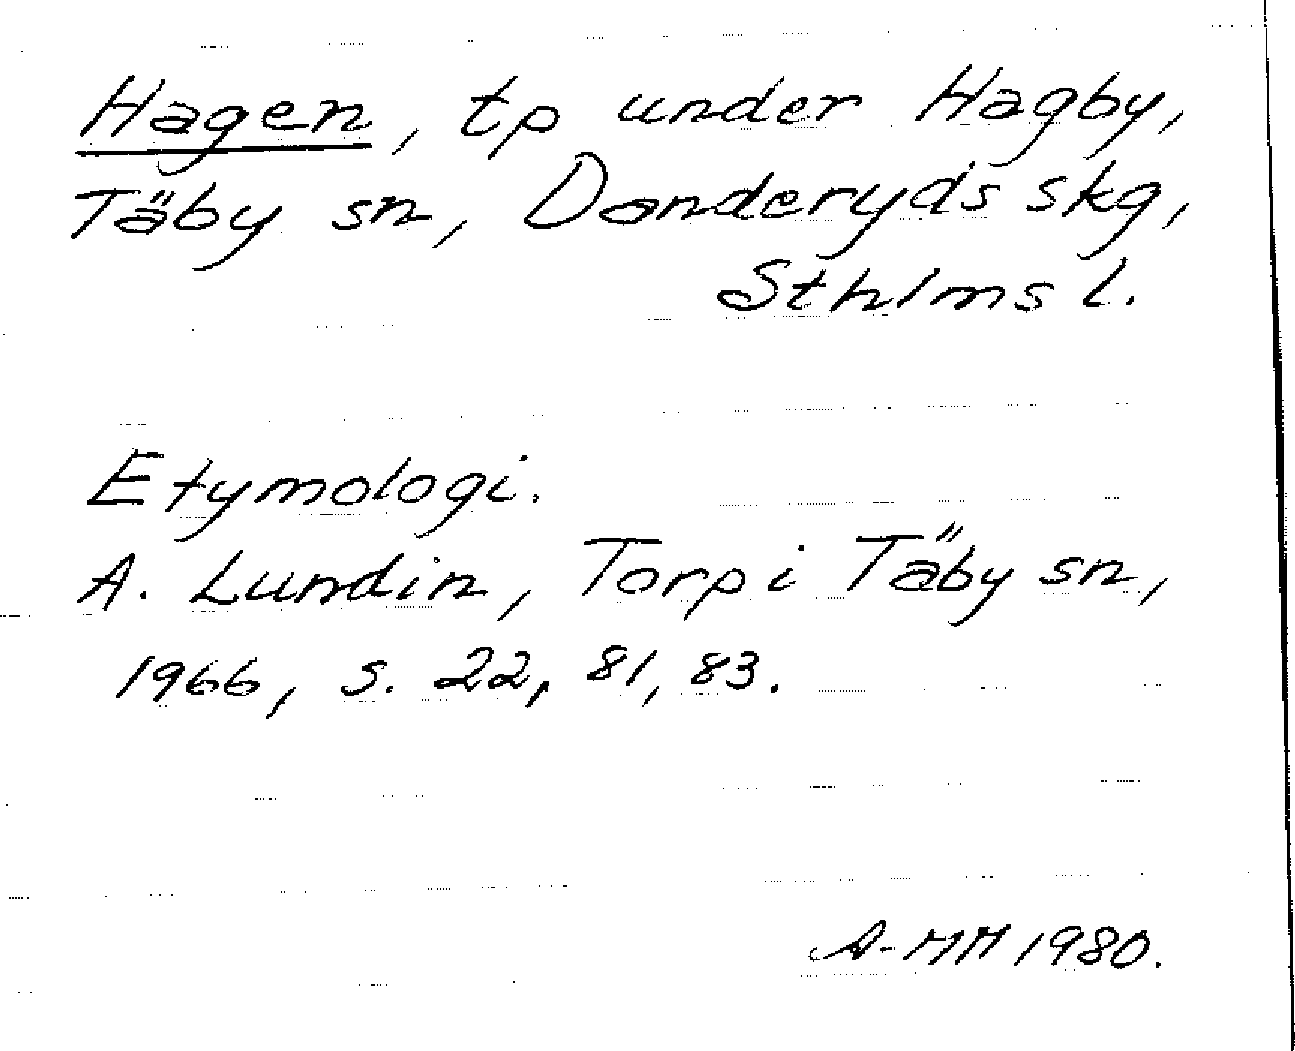 Hagen, tp under Hagby,
Täby sn, Danderyds skg,
Sthlms l.
Etymologi.
A. Lundin, Torp i Täby sn,
1966, s. 22, 81, 83.
A-MM 1980.